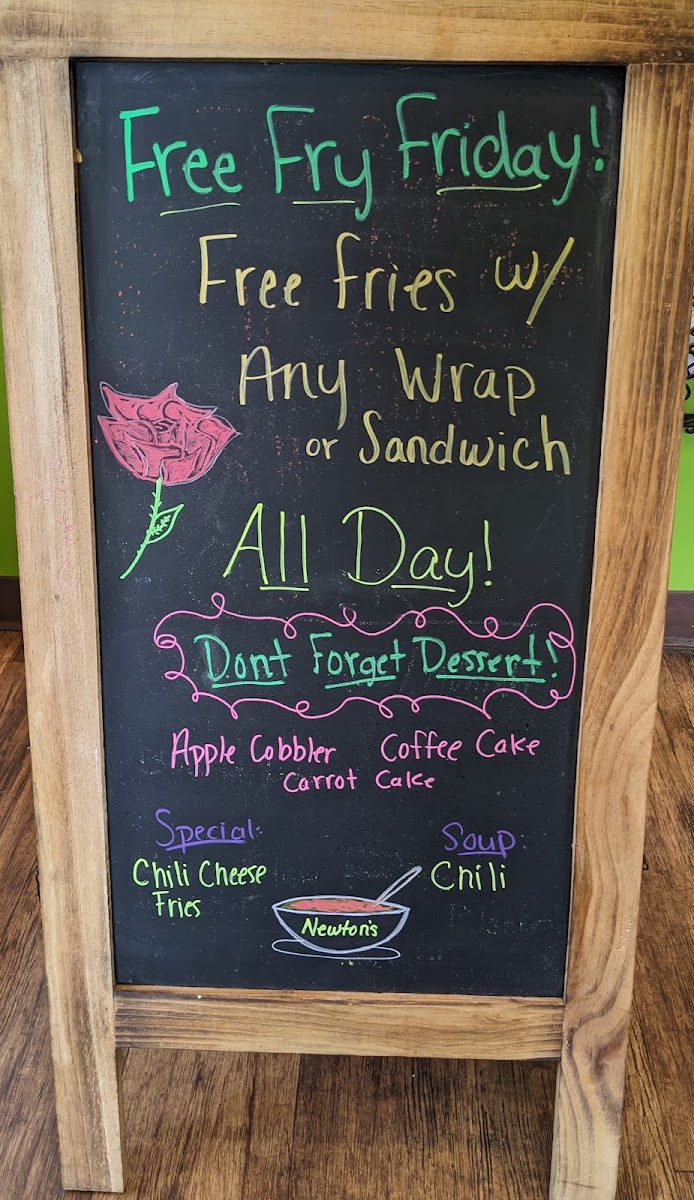 Free Fry Friday!
Free fries w/
Any Wrap
or Sandwich
All Day!
Dont Forget Dessert!
Apple Cobbler Coffee Cake
Carrot Cake
Special:
Chili Cheese
Fries
Soup:
Chili
Newton's